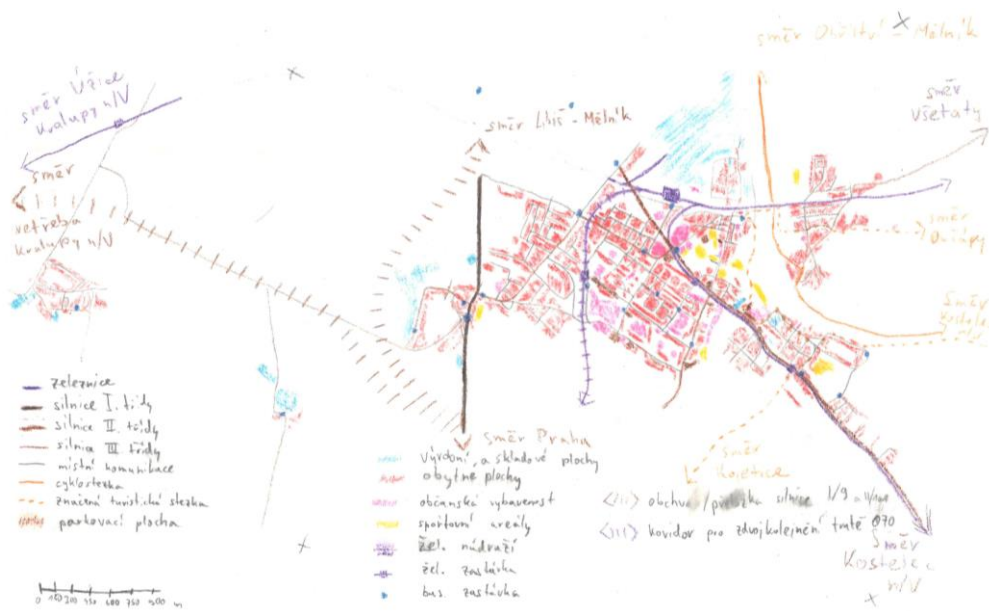 směr Obříství - Mělník
směr Úžice
Kralupy n/V
směr
Všetaty
směr Libiš - Mělník
směr
Kralupy n/V
směr
směr
směr Praha
směr
směr
Kostelec
n/V
železnice
silnice I. třídy
silnice II. třídy
silnice III. třídy
místní komunikace
cyklostezka
značená turistická stezka
parkovací plocha
výrobní a skladové plochy
obytné plochy
občanská vybavenost
sportovní areály
žel. nádraží
žel. zastávka
bus. zastávka
obchvat/přeložka silnice I/9
koridor pro zdvojkolejnění tratě 070
0 150 300 450 600 750 900 m